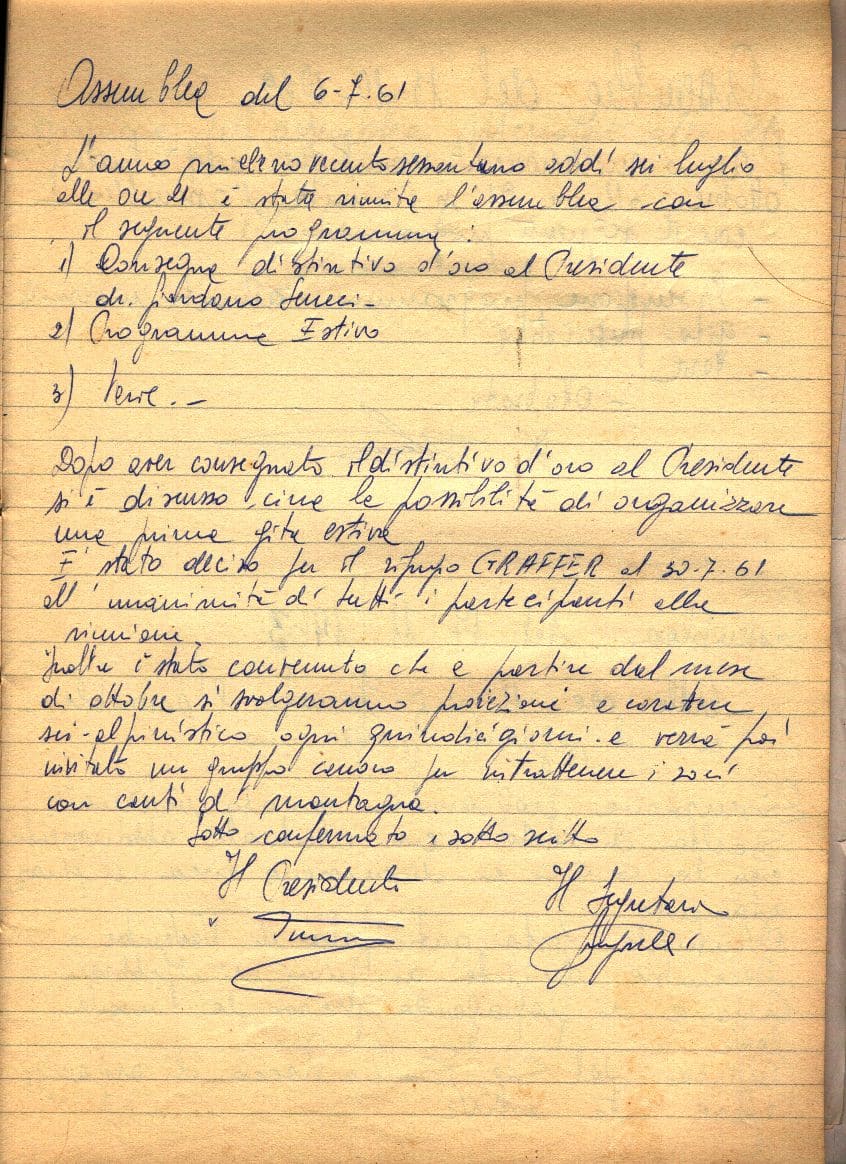 Assemblea del 6-7-61
L'anno millenovecentosessantuno addì sei luglio
alle ore 21 è stata riunita l'assemblea con
il seguente programma:
1) Consegna distintivo d'oro al Presidente
dr. Giordano
2) Programma Estivo
3) Varie. -
Dopo aver consegnato il distintivo d'oro al Presidente
si è discusso circa le possibilità di organizzare
una prima gita estiva
E' stato deciso per il rifugio GRAFFER al 30-7-61
all'unanimità di tutti i partecipanti alla
riunione.
Inoltre è stato convenuto che a partire dal mese
di ottobre si svolgeranno proiezioni a carattere
sci-alpinistico ogni quindici giorni e verrà poi
invitato un gruppo canoro per intrattenere i soci
con canti di montagna.
Fatto confermato e sottoscritto
Il Presidente
Il Segretario